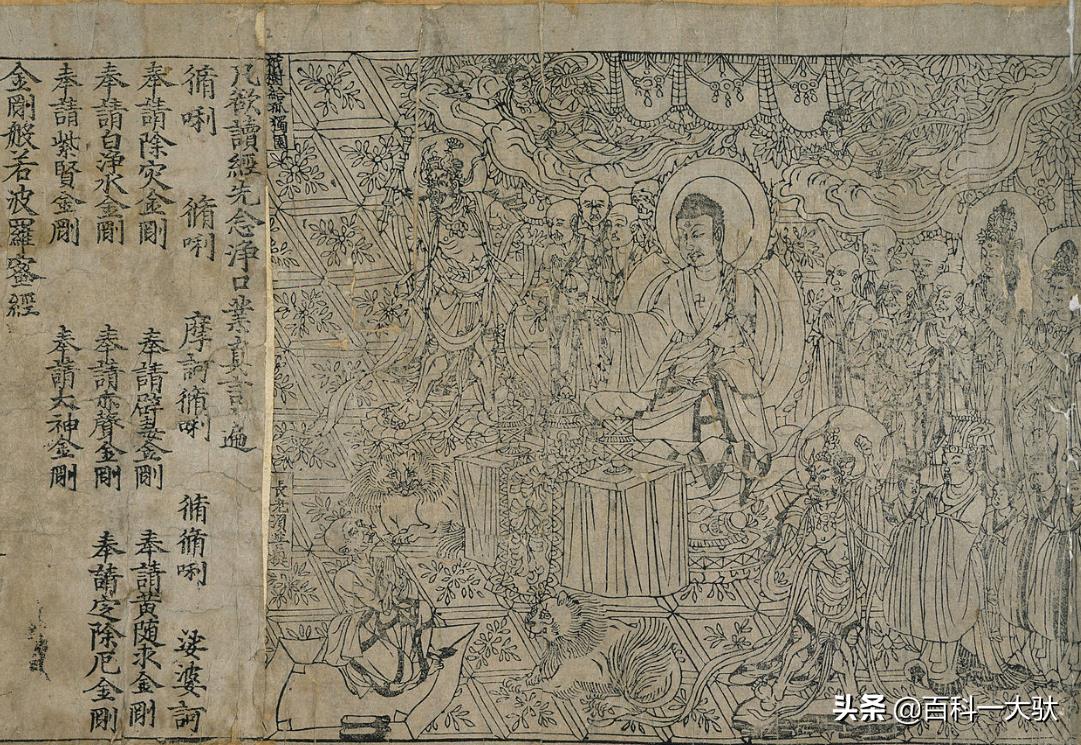 祇樹給孤獨園
長老須菩提
凡欲讀經先念淨口業真言一遍
脩唎 脩唎 摩訶脩唎 脩脩唎 娑婆訶
奉請除灾金剛 奉請辟毒金剛 奉請黄随求金剛
奉請白淨水金剛 奉請赤聲金剛 奉請定除厄金剛
奉請紫賢金剛 奉請大神金剛
金剛般若波羅蜜經
头条 @百科一大驮